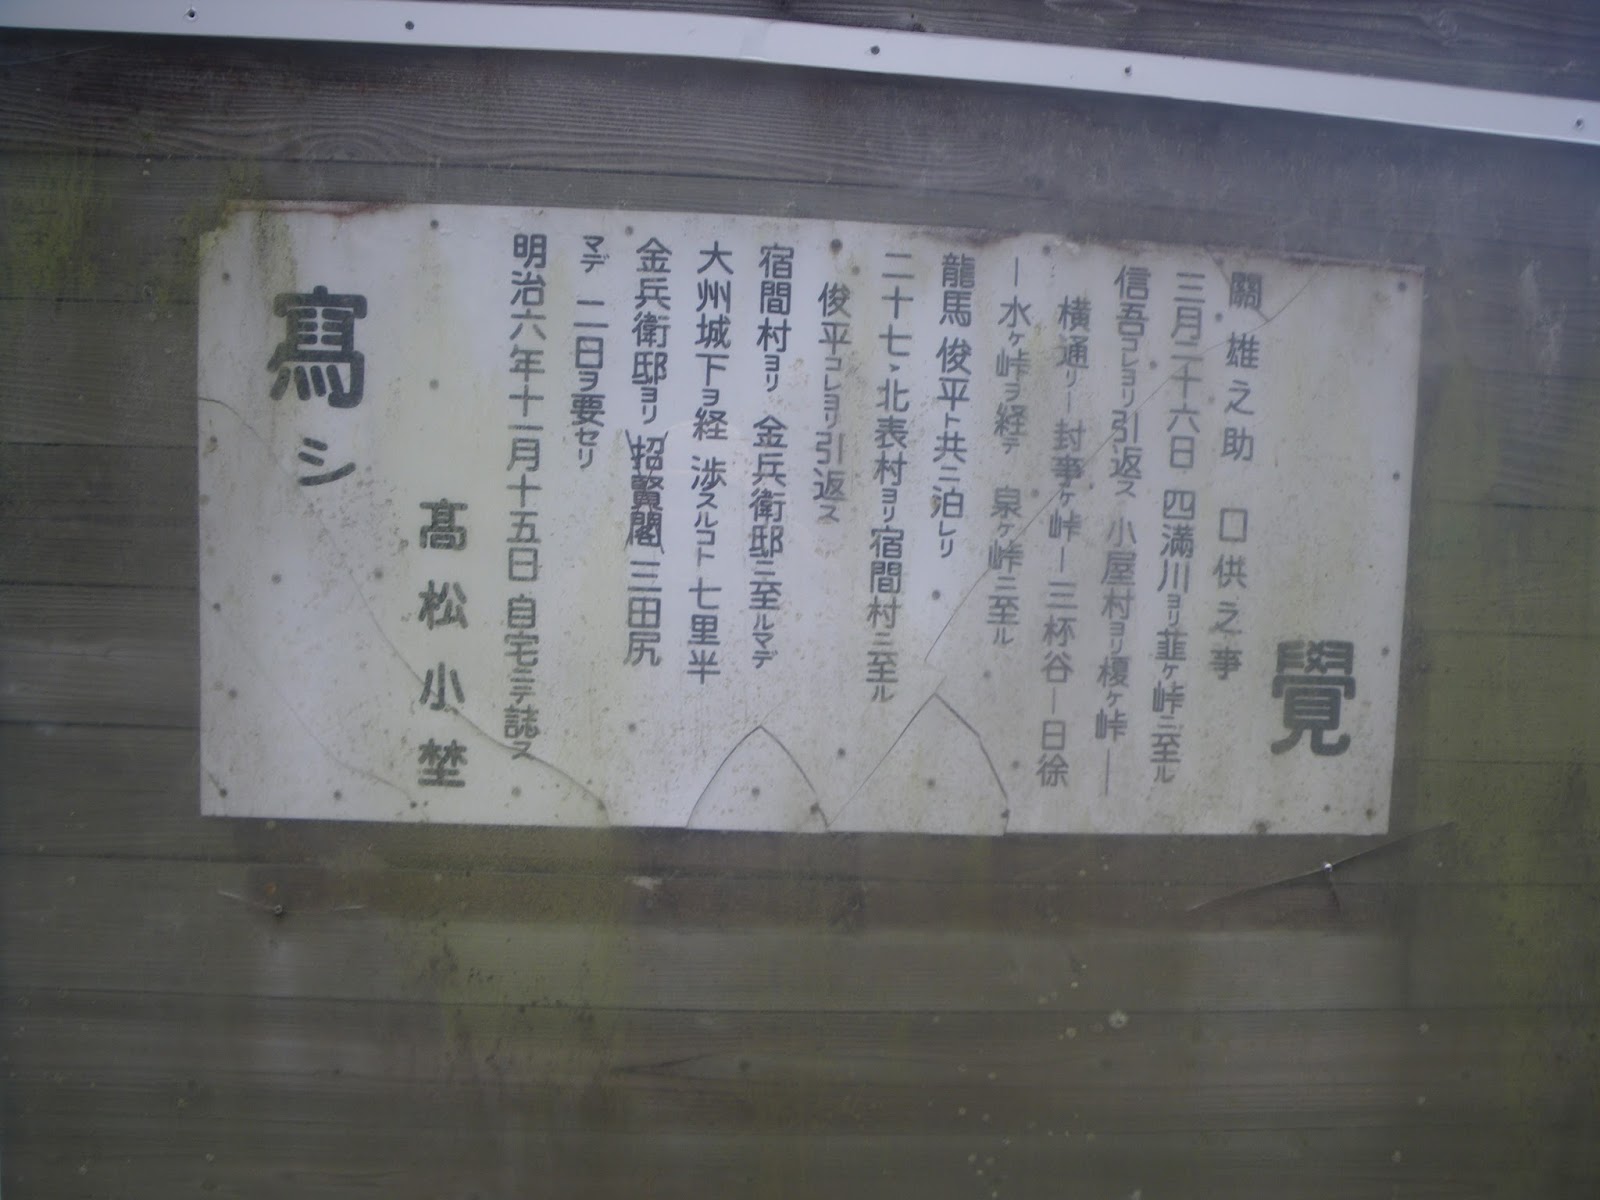 覺
關雄之助 口供之事
三月二十六日 四満川ヨリ韮ヶ峠ニ至ル
信吾コレヨリ引返ス 小屋村ヨリ榎ヶ峠―
横通リ―封事ヶ峠―三杯谷―日徐
―水ヶ峠ヲ経テ 泉ヶ峠ニ至ル
龍馬 俊平ト共ニ泊レリ
二十七〻北表村ヨリ宿間村ニ至ル
俊平コレヨリ引返ス
宿間村ヨリ 金兵衛邸ニ至ルマデ
大州城下ヲ経 渉スルコト七里半
金兵衛邸ヨリ(招賢閣)三田尻
マデ 二日ヲ要セリ
明治六年十一月十五日 自宅ニテ誌ス
髙松小埜
寫シ